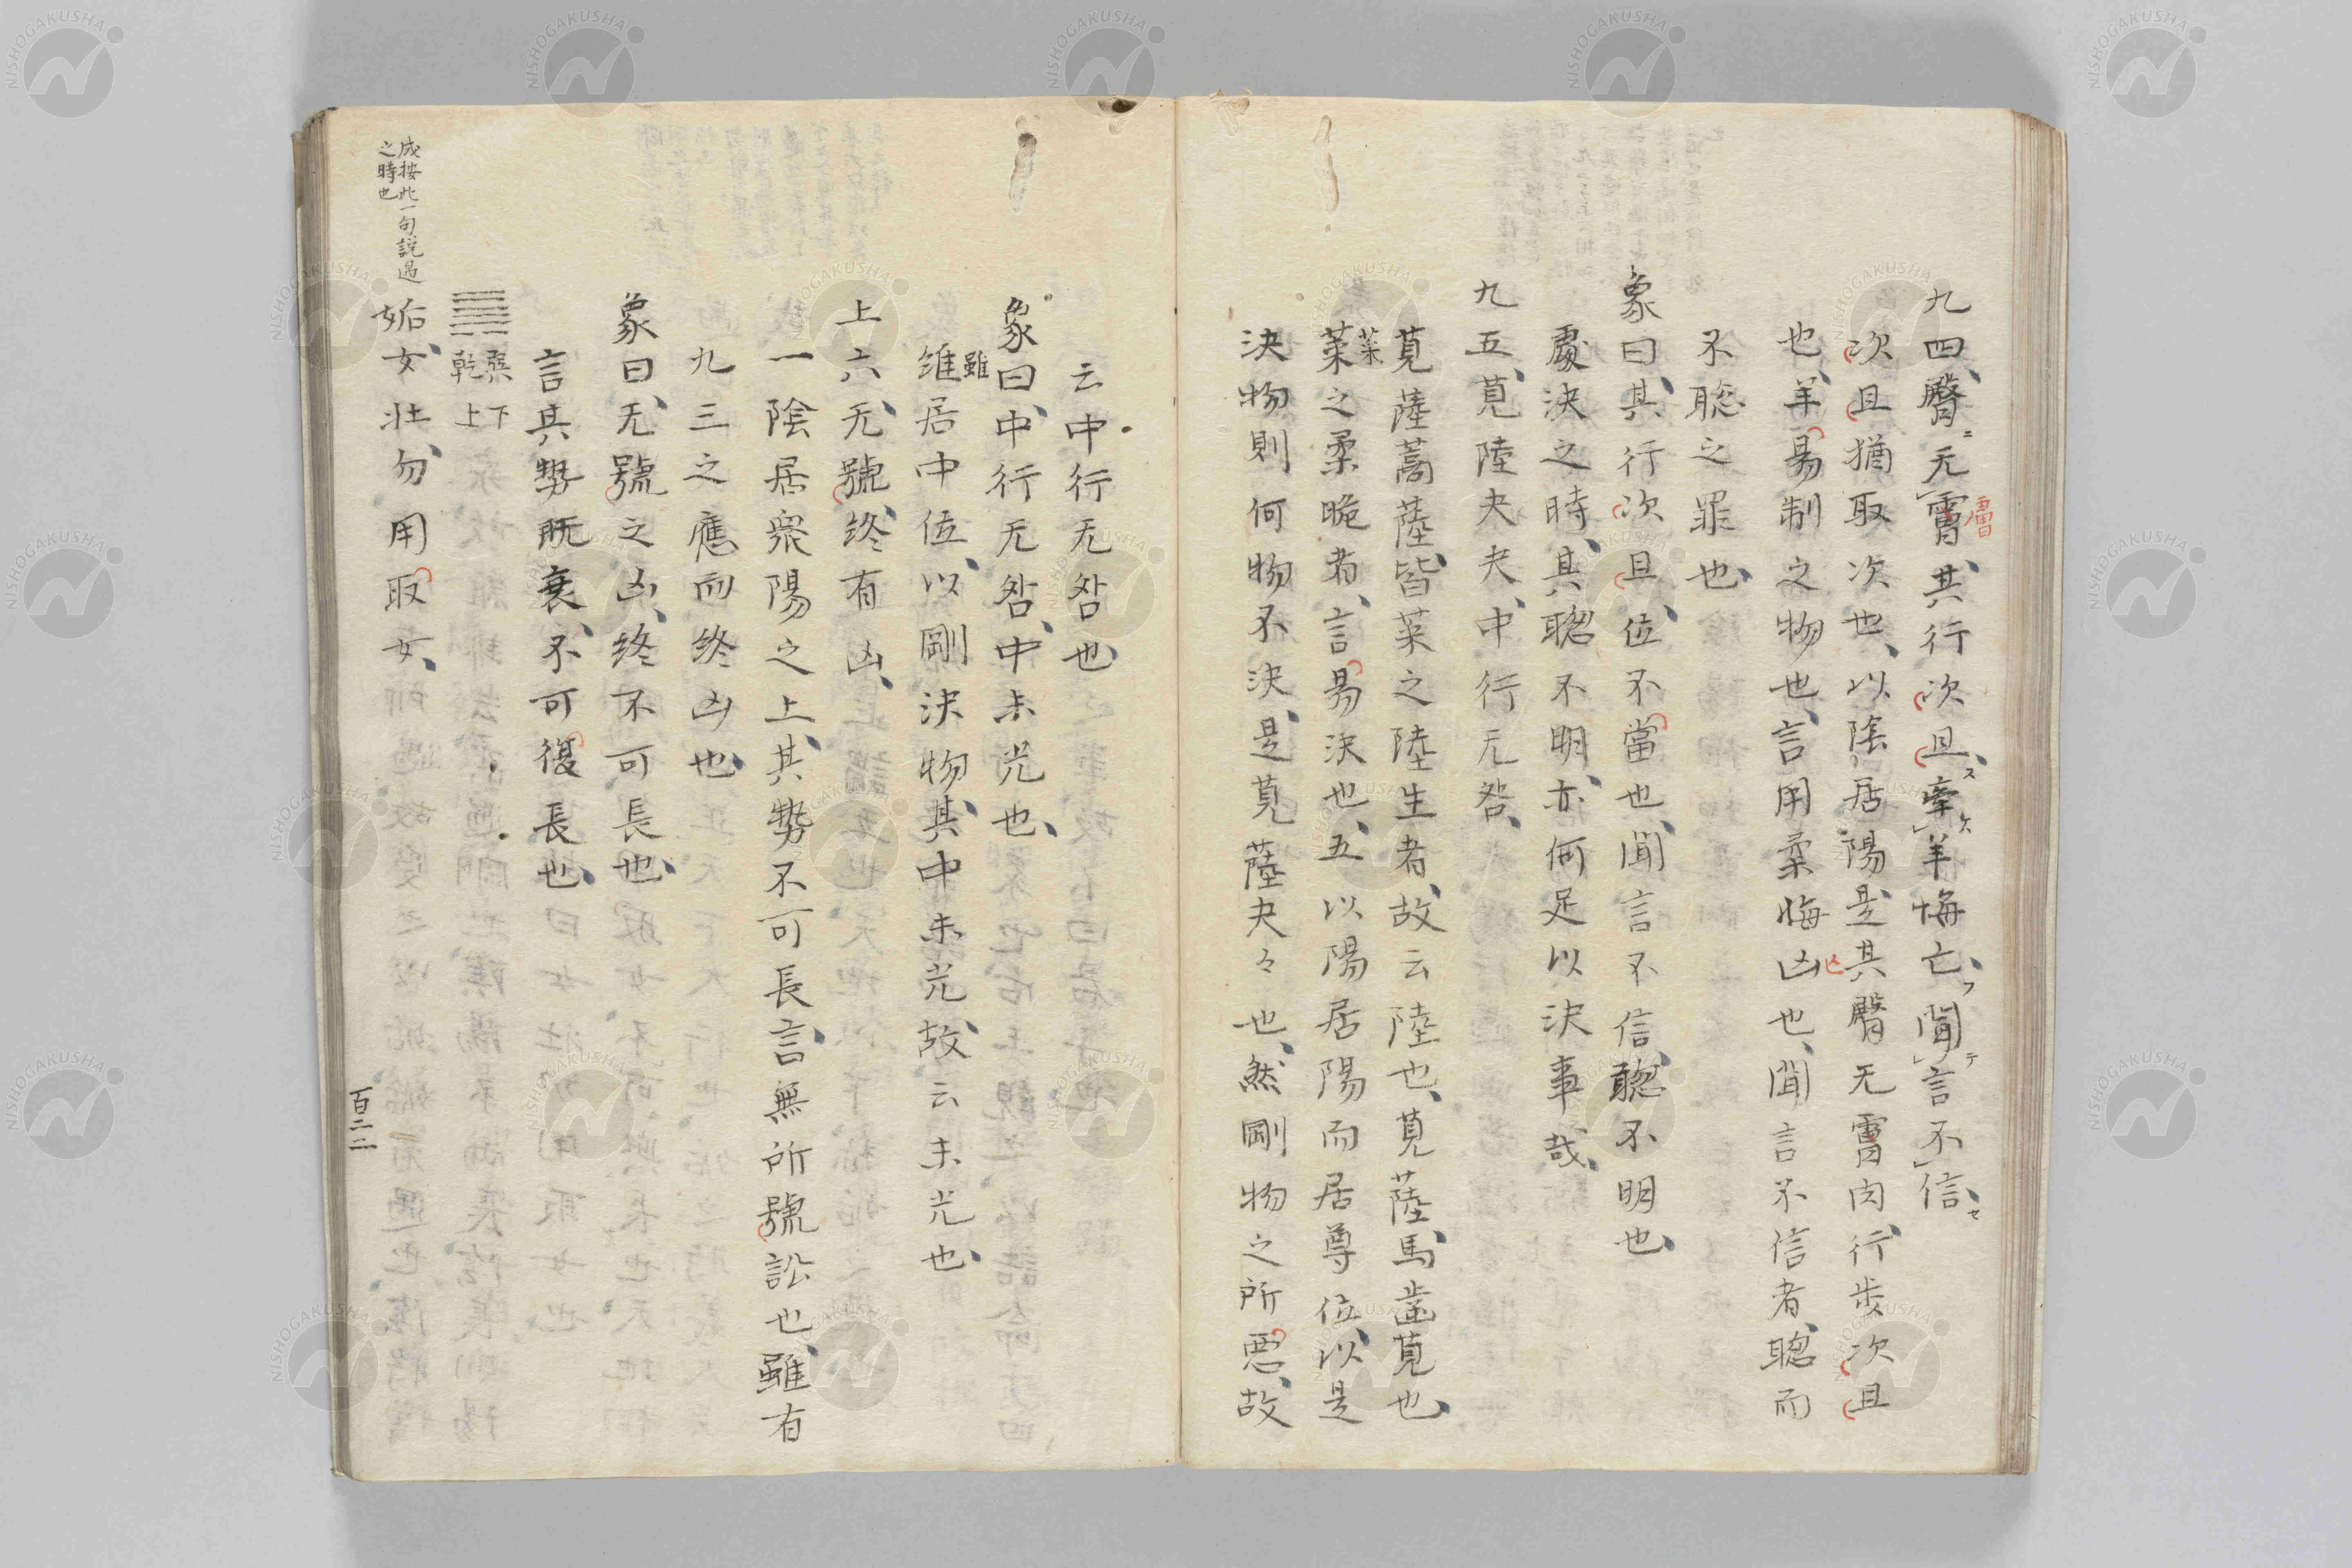 九四臀无膚其行次且牽羊悔亡聞言不信
次且猶取次也以陰居陽是其臀无膚肉行歩次且
也羊易制之物也言用柔悔凶也聞言不信者聡而
不聡之罪也
象曰其行次且位不當也聞言不信聡不明也
處決之時其聡不明亦何足以決事哉
九五莧陸夬夬中行无咎
莧陸蒿蓙皆菜之陸生者故云陸也莧蓙馬歯莧也
葉之柔脆者言易決也五以陽居陽而居尊位以是
菜
決物則何物不決是莧蓙夬々也然剛物之所悪故
云中行无咎也
象曰中行无咎中未光也
雖
維居中位以剛決物其中未光故云未光也
上六无號終有凶
一陰居衆陽之上其勢不可長言無所號訟也雖有
九三之應而終凶也
象曰无號之凶終不可長也
言其勢既衰不可復長也
巽下
乾上
姤女壮勿用取女
成按此一句説遇
之時也
百二二
NISHOGAKUSHA